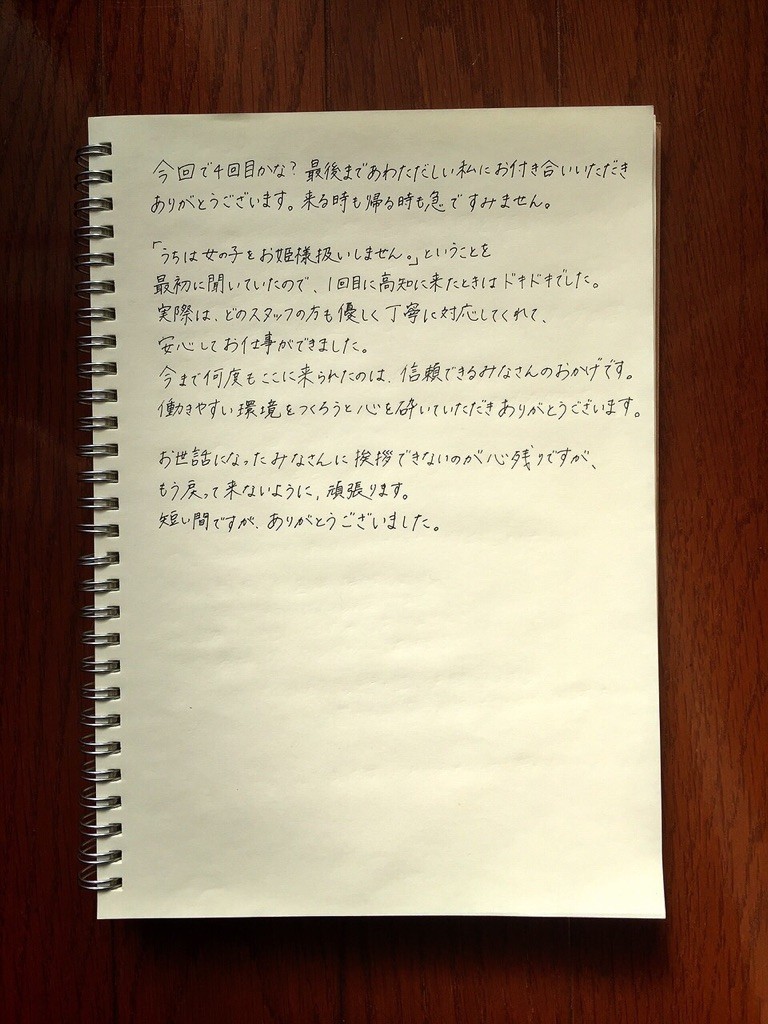 今回で4回目かな?最後まであわただしい私にお付き合いいただき
ありがとうございます。来る時も帰る時も急ですみません。
「うちは女の子をお姫様扱いしません。」ということを
最初に聞いていたので、1回目に高知に来たときはドキドキでした。
実際は、どのスタッフの方も優しく丁寧に対応してくれて、
安心してお仕事ができました。
今まで何度もここに来られたのは、信頼できるみなさんのおかげです。
働きやすい環境をつくろうと心を砕いていただきありがとうございます。
お世話になったみなさんに挨拶できないのが心残りですが、
もう戻って来ないように、頑張ります。
短い間ですが、ありがとうございました。